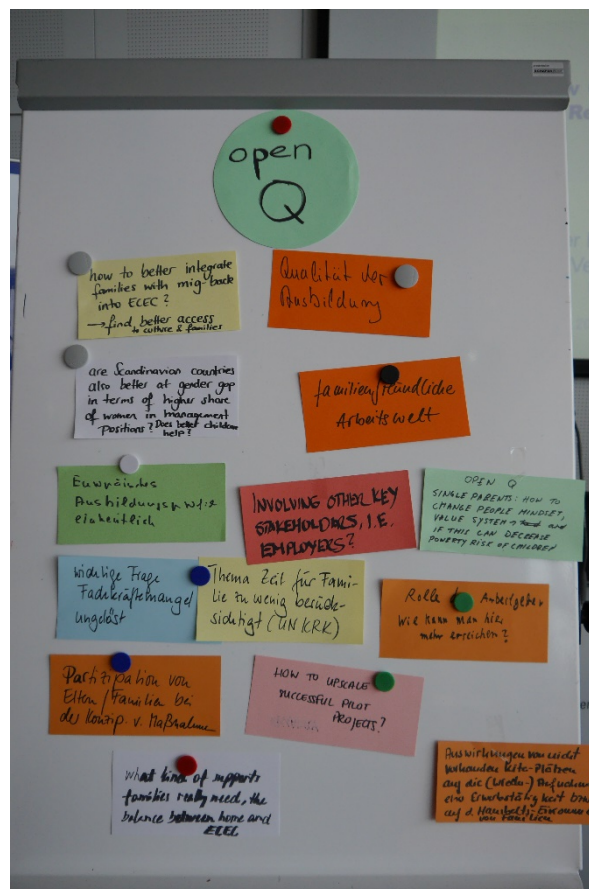 open
Q
how to better integrate
families with mig-back
into ECEC?
→ find better access
to culture & families
Qualität der
Ausbildung
are Scandinavian countries
also better at gender gap
in terms of higher share
of women in management
positions? Does better childcare
help?
familienfreundliche
Arbeitswelt
Ausbildungsprofile
einheitlich
INVOLVING OTHER KEY
STAKEHOLDERS, I.E.
EMPLOYERS?
OPEN Q
SINGLE PARENTS: HOW TO
CHANGE PEOPLE MINDSET,
VALUE SYSTEM → and
IF THIS CAN DECREASE
POVERTY RISK OF CHILDREN
wichtige Frage
Fachkräftemangel
ungelöst
Thema Zeit für Fami-
lie zu wenig berück-
sichtigt (UN KRK)
Rolle Arbeitgeber
Wie kann man hier
mehr erreichen?
Partizipation von
Eltern/Familien bei
der Konzip. v. Maßnahme
HOW TO UPSCALE
SUCCESSFUL PILOT
PROJECTS?
what kind of supports
families really need, the
balance between home and
ECEC
Auswirkungen von nicht
vorhandenen Kita-Plätzen
auf die (Wieder-) Aufnahme
eine Erwerbstätigkeit bzw
auf d. Haushalts-Einkommen
von Familien